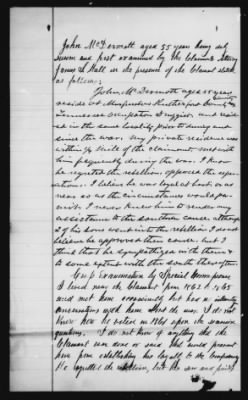 John McDermott aged 55 years being duly
sworn and first examined by the Claimants Attorney
James A Hall in the presence of the Claimant states
as follows;
John McDermott aged 55 years
reside at Murfreesboro Rutherford County
Tennessee occupation Druggist and resi
ded in the same locality prior to during and
since the war. My private residence was
within 1/2 mile of the claimant met with
him frequently during the war. I know
he regretted the rebellion opposed the seper
ation. I believe he was loyal at heart or as
near so as the circumstances would per
mit. I never knew him to render any
assistance to the southern cause, although
2 of his sons went into the rebellion I do not
believe he approved their cause, but I
think that he sympathized with them &
to some extent with the south thereafter.
Cross Examination by Special Commissioner
I lived near the Claimant from 1862 to 1865
and met him occasionally but had no
conversations with him about the war. I do not
know how he voted in 1861 upon the secession
question. I do not know of anything that the
Claimant ever done or said that would prevent
him from establishing his loyalty to the Company
He regretted the rebellion, but the war and